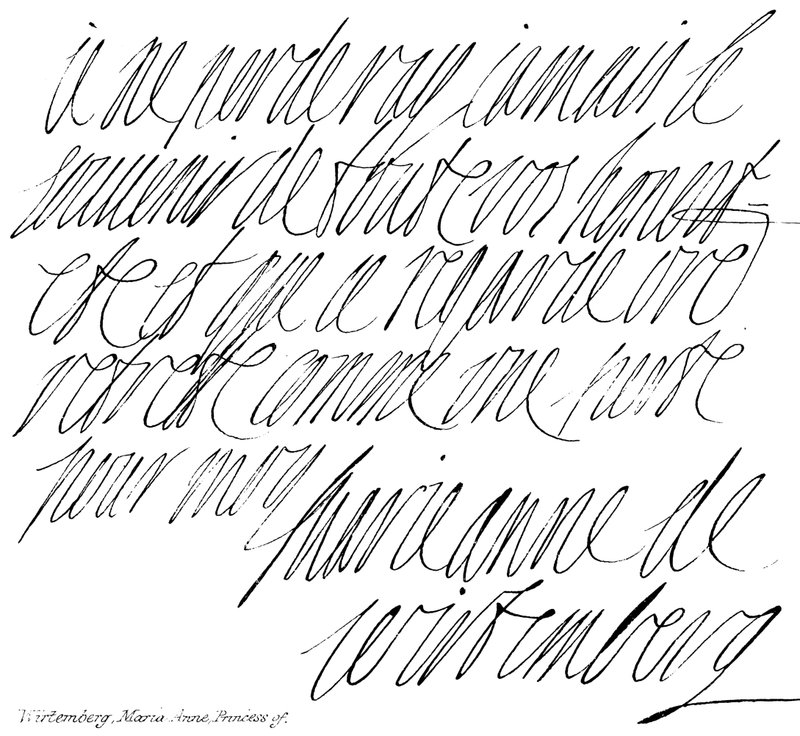 ie ne perderay iamais le
souuenir de toute vos honest=
este et que ie regarde vre
retreste comme une perte
pour moy
marie anne de
wirtemberg
Wirtemberg, Maria Anne, Princess of.